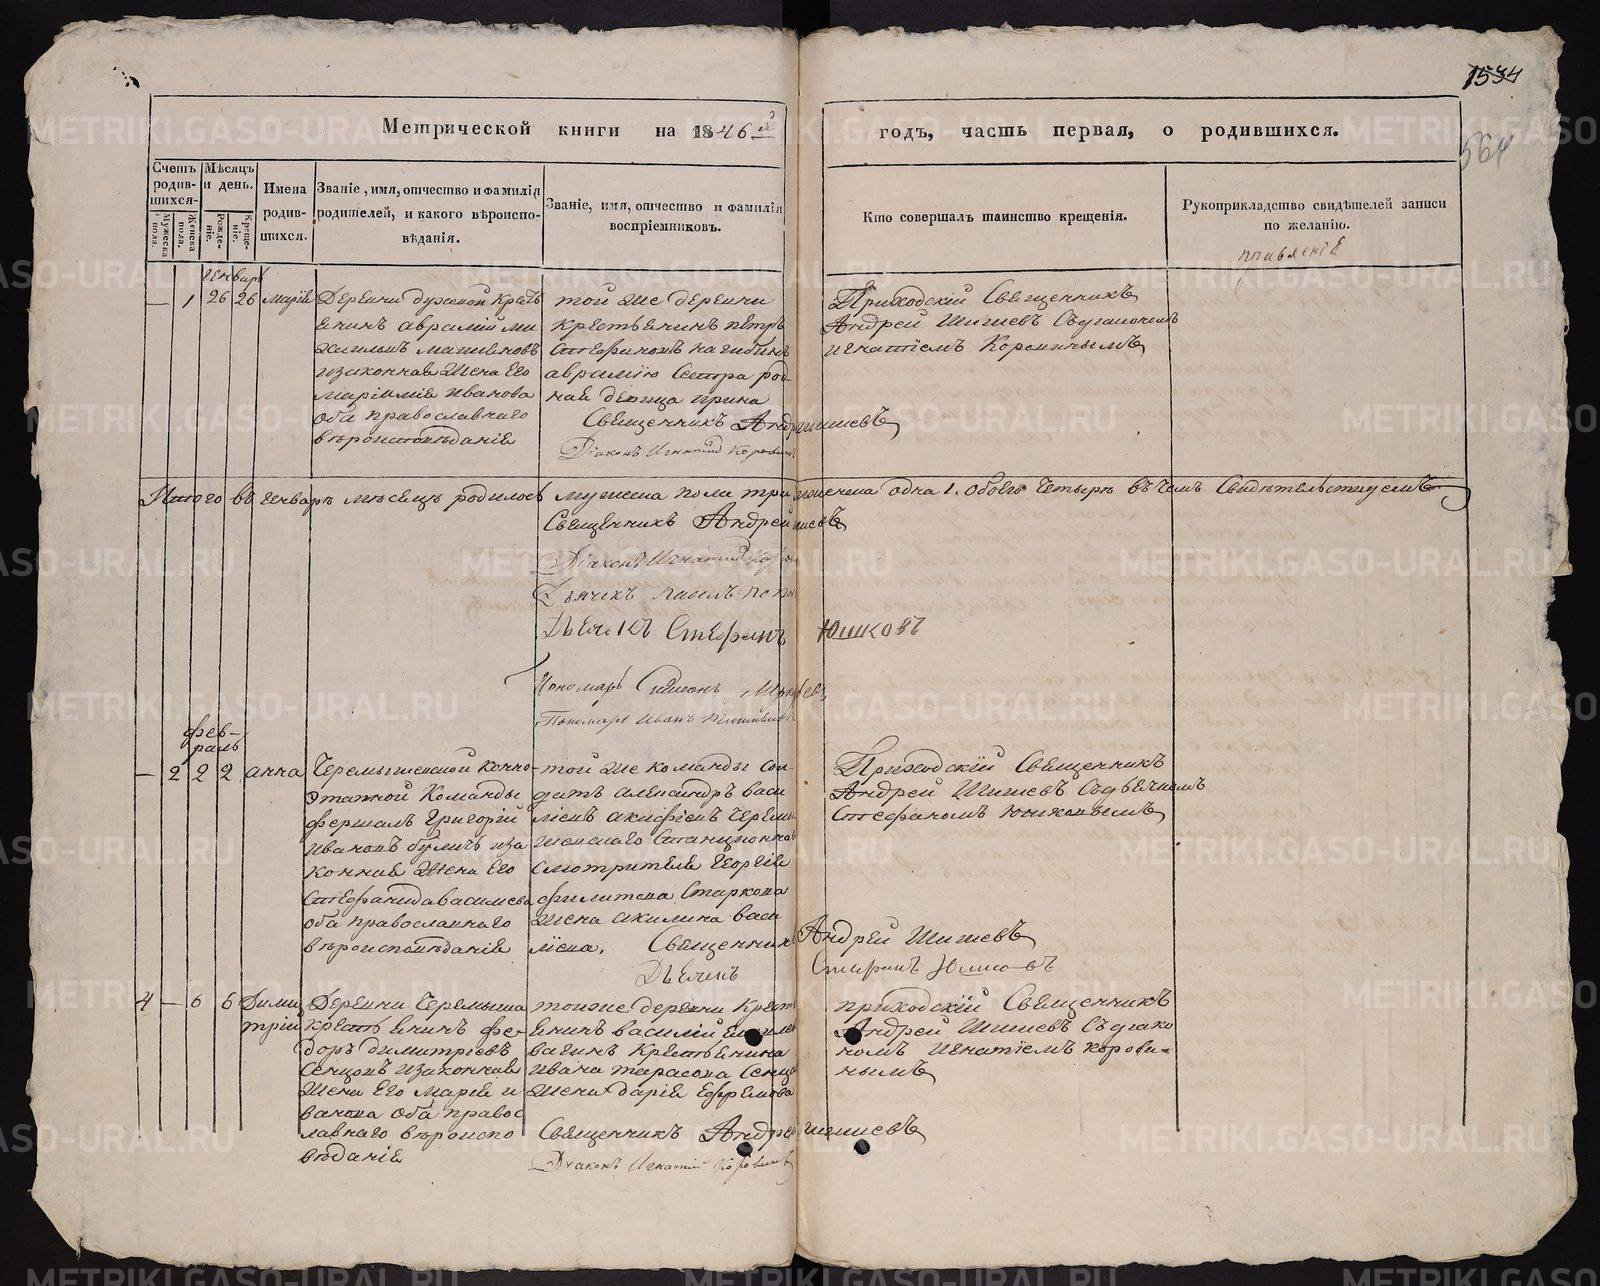 1534
564
Метрической книги на 1846й годъ, часть первая, о родившихся.
Счетъ родив-шихся.
Мужеска пола.
Женска пола.
Мѣсяцъ и день.
Рожде-ніе.
Креще-ніе.
Имена родив-шихся.
Званіе, имя, отчество и фамилія
родителей, и какого вѣроиспо-
вѣданія.
Званіе, имя, отчество и фамилія
воспріемниковъ.
Кто совершалъ таинство крещенія.
Рукоприкладство свидѣтелей записи
по желанію.
генварь
— 1 26 26 Марія
Деревни крестъ
янинъ Авраамій Ми
хаиловъ
и законная жена его
Маріамія Иванова
оба православнаго
вѣроисповѣданія
той же деревни
крестьянинъ Петръ
Стефановъ Нагибинъ
Аврамію сестра род-
ная девица Ирина
Священникъ Андрей Шишевъ
Діаконъ Игнатій Коровинъ
Приходскій Священникъ
Андрей Шишевъ съ діакономъ
Игнатіемъ Коровинымъ
Итого въ генварѣ месецѣ родилось мужеска пола три женска одна 1. обоего четыре въ чемъ свидетельствуемъ
Священникъ Андрей Шишевъ
Діаконъ Игнатій Коровинъ
Дьячекъ Павелъ Попов
Дьячекъ Стефанъ Юшковъ
Пономарь Симеонъ
Пономарь Иванъ
фев-
раль
— 2 2 2 Анна
Черемышенской конно-
этапной команды
фершалъ Григорій
Ивановъ и за
конная жена его
Стефанида Васильева
оба православнаго
вѣроисповѣданія
той же команды сол-
датъ Александръ Васи
ліевъ Черемы
шенскаго станціонна
смотрителя Георгія
Филипова Старкова
жена Акилина Васи
ліева. Священникъ Андрей Шишевъ
Дьячекъ Стефанъ Юшковъ
Приходскій Священникъ
Андрей Шишевъ съ дьячкомъ
Стефаномъ Юшковымъ
4 — 6 6 Дими
трій
Деревни Черемыша
крестьянинъ Фе-
доръ Димитріевъ
Сенцовъ и законная
жена его Марія И
ванова оба правос
лавнаго вѣроиспо
вѣданія
тоиже деревни крест
янинъ Василій
вагинъ крестьянина
Ивана Тарасова Сенцо
жена Дарія Ефремова
Священникъ Андрей Шишевъ
Діаконъ Игнатій Коровинъ
Приходскій Священникъ
Андрей Шишевъ съ діако
номъ Игнатіемъ Корови-
нымъ
METRIKI.GASO-URAL.RU